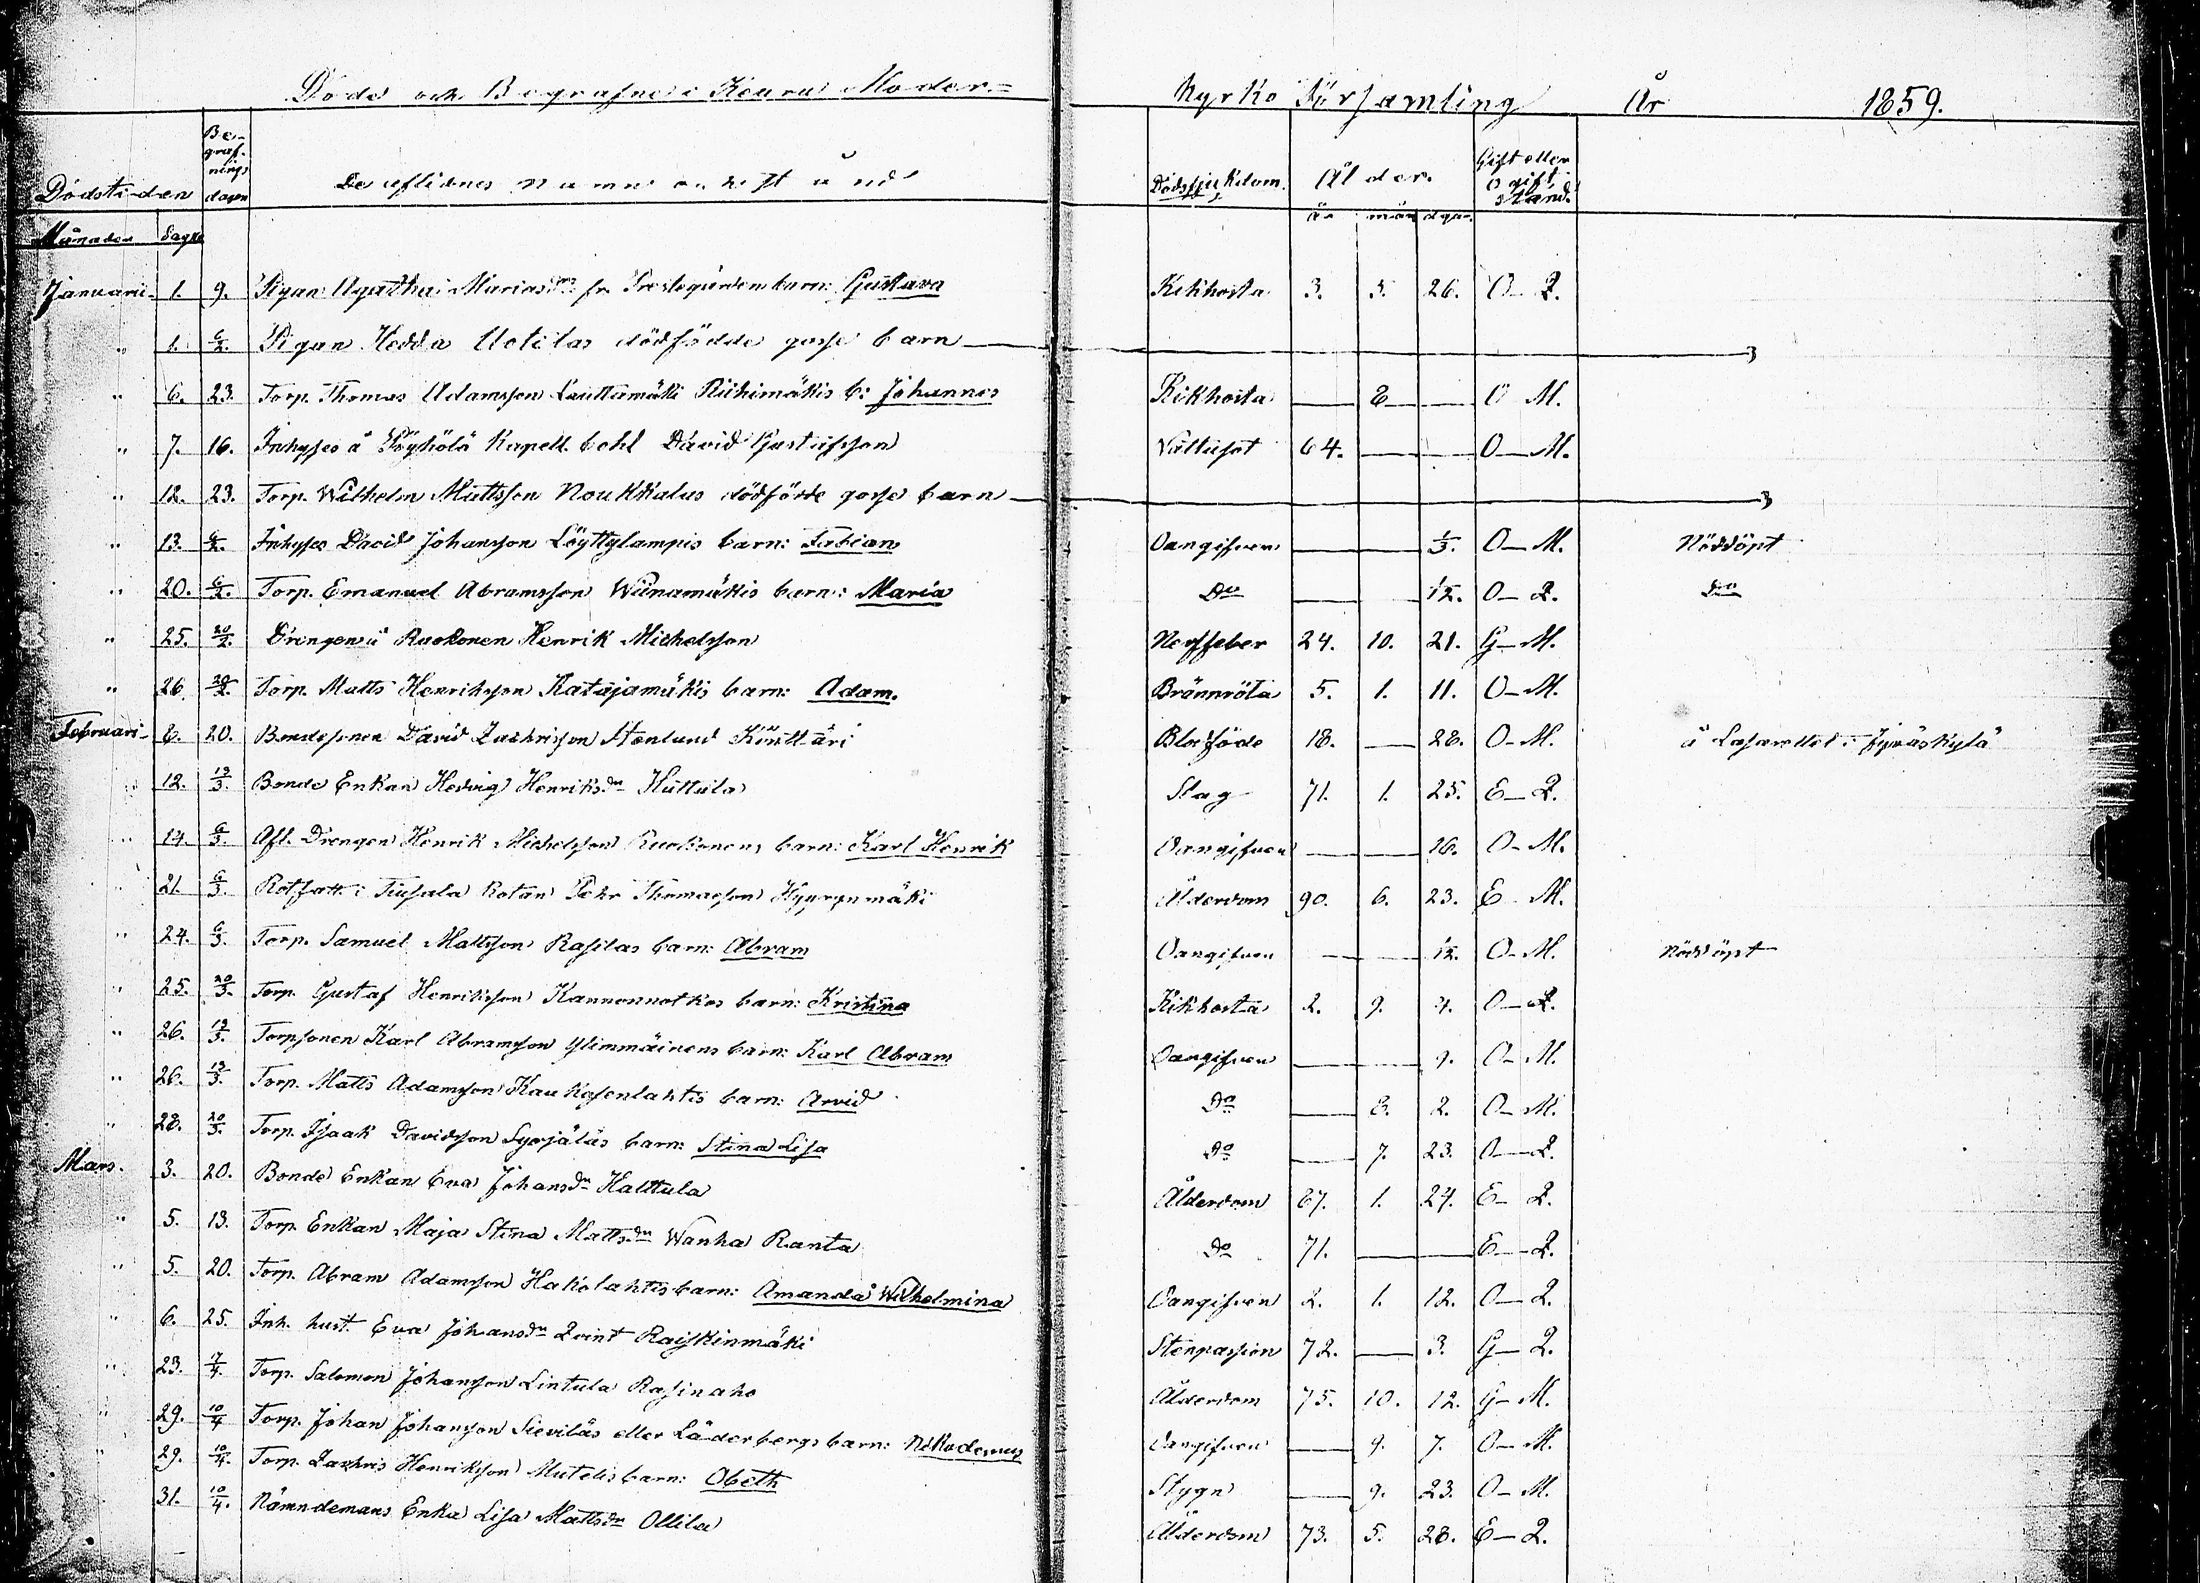 Döde och Begrafne i Keuru Moder= Kyrko Församling År 1859.
Dödstiden Begrafnings dagen De aflidnes namn och stånd Dödssjukdom. Ålder. Gift eller Ogift stånd.
Månader dagar år mån dgar
Januarii 1. 9. Pigan Agatha Mariasdr fr. Prestegården barn: Gustava Kikhosta 3. 3. 26. O—Q.
" 1. 6/2. Pigan Hedda Uotilas dödfödde gosse barn
" 6. 23. Torp. Thomas Adamsson Lauttamäki Riihimäkis b: Johannes Kikhosta — 8 — O M.
" 7. 16. Inhyses å Pöyhölä Kapell. bohl David Gustafsson Vattusot 64. — — O—M.
" 12. 23. Torp. Wilhelm Mattsson Noukkalas dödfödde gosse barn
" 13. 6/2. Inhyses David Johansson Löyttylampis barn: Fabian Oangifven — — 1/3. O—M. Nöddöpt
" 20. 6/2. Torp. Emanuel Abramsson Wiinamäkis barn: Maria Do — — 1/2. O—Q. Do
" 25. 20/2. Drengen å Ruokonen Henrik Michelsson Nerffeber 24. 10. 21. G—M.
" 26. 20/2. Torp. Matts Henriksson Katajamäkis barn: Adam. Brännröta 5. 1. 11. O—M.
Februari 6. 20. Bondesonen David Zachrisson Stenlund Kinttäri Blodflöde 18. — 28. O—M. å Lasarettet i Jyväskylä
" 12. 13/3. Bonde Enkan Hedvig Henriksdr Huttula Slag 71. 1. 25. E—Q.
" 14. 6/3. Afl. Drengen Henrik Michelsson Ruokonens barn: Karl Henrik Oangifven — — 16. O—M.
" 21. 6/3. Rotfatt. i Tiusala Rotan Pehr Thomasson Hyyrynmäki Ålderdom 90. 6. 23. E—M.
" 24. 6/3. Torp. Samuel Mattsson Rasilas barn: Abram Oangifven — — 1/2. O—M. Nöddöpt
" 25. 20/3. Torp. Gustaf Henriksson Kannonnotkos barn: Kristina Kikhosta 2. 9. 4. O—Q.
" 26. 13/3. Torpsonen Karl Abramsson Ylimmäinens barn: Karl Abram Oangifven — — 9. O—M.
" 26. 13/3. Torp. Matts Adamsson Kaukasenlahtis barn: Arvid Do — 8. 2. O—M.
" 28. 20/3. Torp. Isaak Davidsson Syrjäläs barn: Stina Lisa Do — 7. 23. O—Q.
Mars. 3. 20. Bonde Enkan Eva Johansdr Halttula Ålderdom 67. 1. 24. E—Q.
" 5. 13. Torp. Enkan Maja Stina Mattsdr Wanha Ranta Do 71. — — E—Q.
" 5. 20. Torp. Abram Adamsson Hakolahtis barn: Amanda Wilhelmina Oangifven 2. 1. 12. O—Q.
" 6. 25. Inh. hust. Eva Johansdr Qvint Raiskinmäki Stenpassion 72. — 3. G—Q.
" 23. 17/4. Torp. Salomon Johansson Lintula Rasinaho Ålderdom 75. 10. 12. G—M.
" 29. 10/4 Torp. Johan Johansson Sieviläs eller Läderbergs barn: Nikodemus Oangifven — 9. 7. O—M.
" 29. 10/4. Torp. Zachris Henriksson Mutelis barn: Obeth Stygn — 9. 23. O—M.
31. 10/4. Nämndemans Enka Lisa Mattsdr Ollila Ålderdom 73. 5. 28. E—Q.